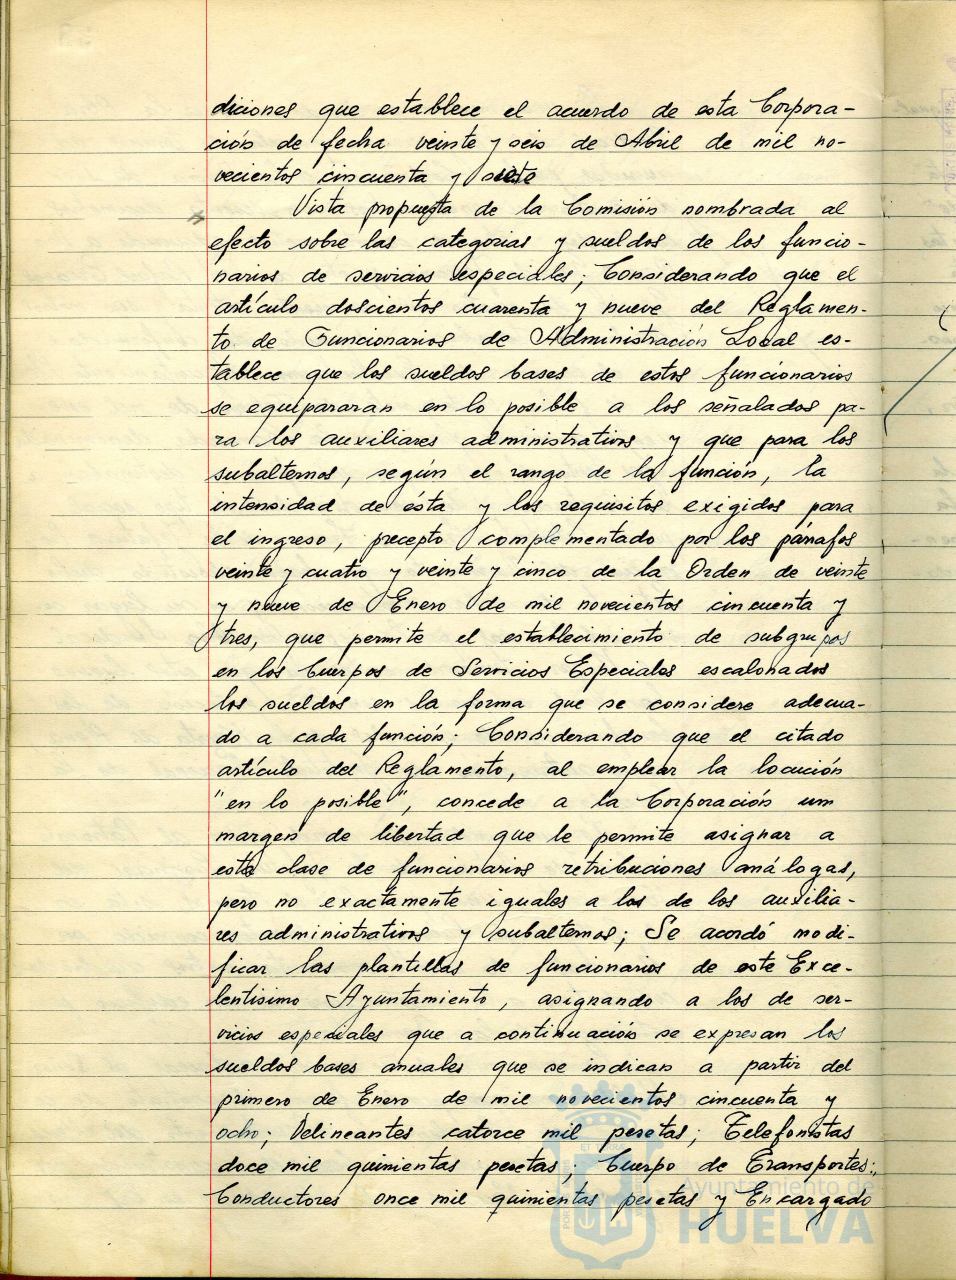 diciones que establece el acuerdo de esta Corpora-
ción de fecha veinte y seis de Abril de mil no-
vecientos cincuenta y siete
Vista propuesta de la Comisión nombrada al
efecto sobre las categorias y sueldos de los funcio-
narios de servicios especiales; Considerando que el
artículo doscientos cuarenta y nueve del Reglamen-
to de Funcionarios de Administración Local es-
tablece que los sueldos bases de estos funcionarios
se equipararan en lo posible a los señalados pa-
ra los auxiliares administrativos y que para los
subalternos, según el rango de la función, la
intensidad de ésta y los requisitos exigidos para
el ingreso, precepto complementado por los párrafos
veinte y cuatro y veinte y cinco de la Orden de veinte
y nueve de Enero de mil novecientos cincuenta y
tres, que permite el establecimiento de subgrupos
en los Cuerpos de Servicios Especiales escalonados
los sueldos en la forma que se considere adecua-
do a cada función; Considerando que el citado
artículo del Reglamento, al emplear la locución
"en lo posible", concede a la Corporación un
margen de libertad que le permite asignar a
esta clase de funcionarios retribuciones análogas,
pero no exactamente iguales a los de los auxilia-
res administrativos y subalternos; Se acordó modi-
ficar las plantillas de funcionarios de este Exce-
lentísimo Ayuntamiento, asignando a los de ser-
vicios especiales que a continuación se expresan los
sueldos bases anuales que se indican a partir del
primero de Enero de mil novecientos cincuenta y
ocho; Delineantes catorce mil pesetas; Telefonistas
doce mil quinientas pesetas; Cuerpo de Transportes:
Conductores once mil quinientas pesetas y Encargado
Ayuntamiento de
HUELVA